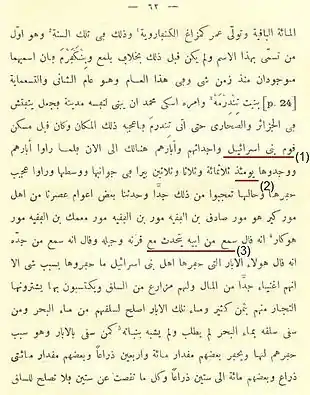 — ٦٢ —
المائة الباقية وتولّى عمر كمزاغ الكنفاروية وذلك فى تلك السنة وهو اوّل
من تسمّى بهذا الاسم ولم يكن قبل ذلك بخلاف يلمع وبنكفرم بان اسميهما
موجودان منذ زمن شى وفى هذا العام وهو عام الثانى والتسعماية
[p. 24] بنيت تندرمة وامره اسكى محمد ان يبنى لنفسه مدينة فجعل يتبقش
فى الجزائر والصحارى حتى اتى تندرم باعجبه ذلك المكان وكان قبل مسكن
قوم بنى اسرائيل واجداثهم وآبارهم هنالك الى الان فلما راوا آبارهم (1)
ووجدوها يومئذ ثلاثمائة وثلاثا وثلاثين بيرا فى جوانبها ووسطها وراوا عجيب (2)
حفرها وحالها تعجبوا من ذلك جدّا وحدثنا بعض اعوام عصرنا من اهل
مور كير هو مور صادق بن الفقيه مور بن الفقيه مور ممعك بن الفقيه مور
هوكار انه قال سمع من ابيه يتحدث مع قرنه وجيله وقال انه سمع من جدّه (3)
انه قال هولاء الابار التى حفرها اهل بنى اسرائيل ما حفروها بسبب شى الا
انهم اغنياء جدّا من المال ولهم مزارع من الساق ويكتسبون بها يشترونها
التجار منهم بثمن كثير وماء تلك الابار اصلح لسلقهم من ماء البحر ومن
سقى سلقه بماء البحر لم يطلب ولم يشبه بنباته كمن سقى بالابار وهو سبب
حفرهم لها ويحفر بعضهم مقدار مائة واربعين ذراعا وبعضهم مقدار مائتى
ذراع وبعضهم مائة الى ستين ذراعًا وكل ما نقصت عن ستين فلا تصلح للساق